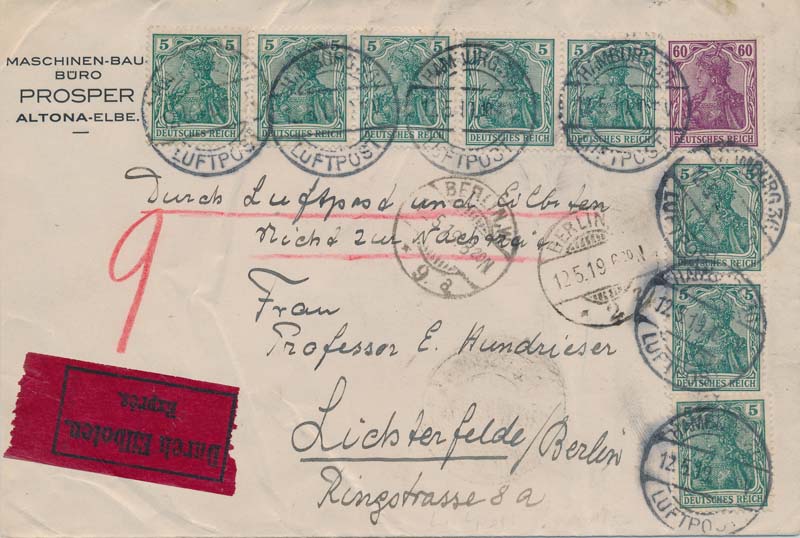 MASCHINEN-BAU-
BÜRO
PROSPER
ALTONA-ELBE.
5 5
DEUTSCHES REICH
5 5
DEUTSCHES REICH
5 5
DEUTSCHES REICH
5 5
DEUTSCHES REICH
5 5
DEUTSCHES REICH
60 60
DEUTSCHES REICH
LUFTPOST
HAMBURG
LUFTPOST
HAMBURG 36
LUFTPOST
HAMBURG 36
LUFTPOST
HAMBURG 36
5
DEUTSCHES REICH
5
DEUTSCHES REICH
12.5.19
5 5
DEUTSCHES REICH
12.5.19
LUFTPOST
Durch Luftpost und Eilboten
Nicht zur Nachtzeit
BERLIN
9. a
BERLIN
12.5.19 6-
9
Frau
Professor E. Hundrieser
Lichterfelde/Berlin
Ringstrasse 8a
Durch Eilboten.
Exprès.